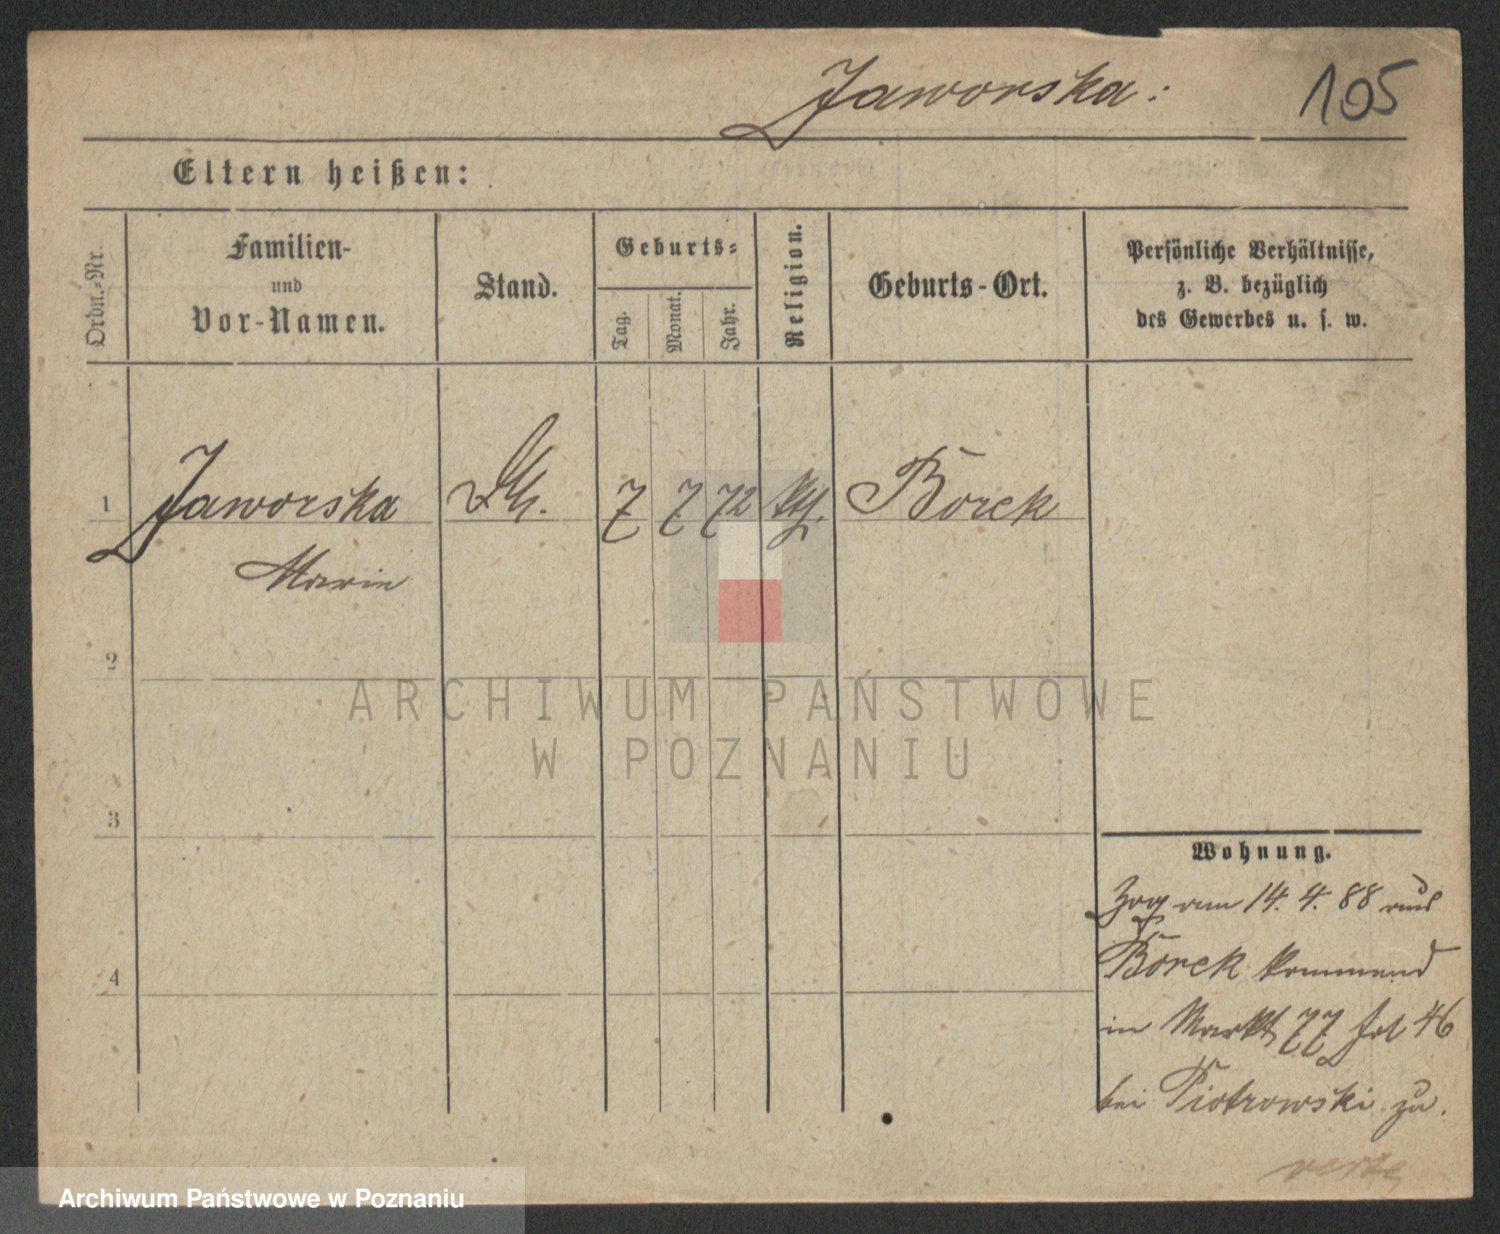 Jaworska:
105
Eltern heißen:
Ordn.-Nr.
Familien-
und
Vor-Namen.
Stand.
Geburts-
Tag.
Monat.
Jahr.
Religion.
Geburts-Ort.
Persönliche Verhältnisse,
z. B. bezüglich
des Gewerbes u. s. w.
1 Jaworska 7 7 72 kth. Borek
Marie
2
3
4
Wohnung.
Zog am 14. 4. 88 aus
Borek kommend
in Markt 77 fol 46
bei Piotrowski zu.
verte
ARCHIWUM PAŃSTWOWE
W POZNANIU
Archiwum Państwowe w Poznaniu